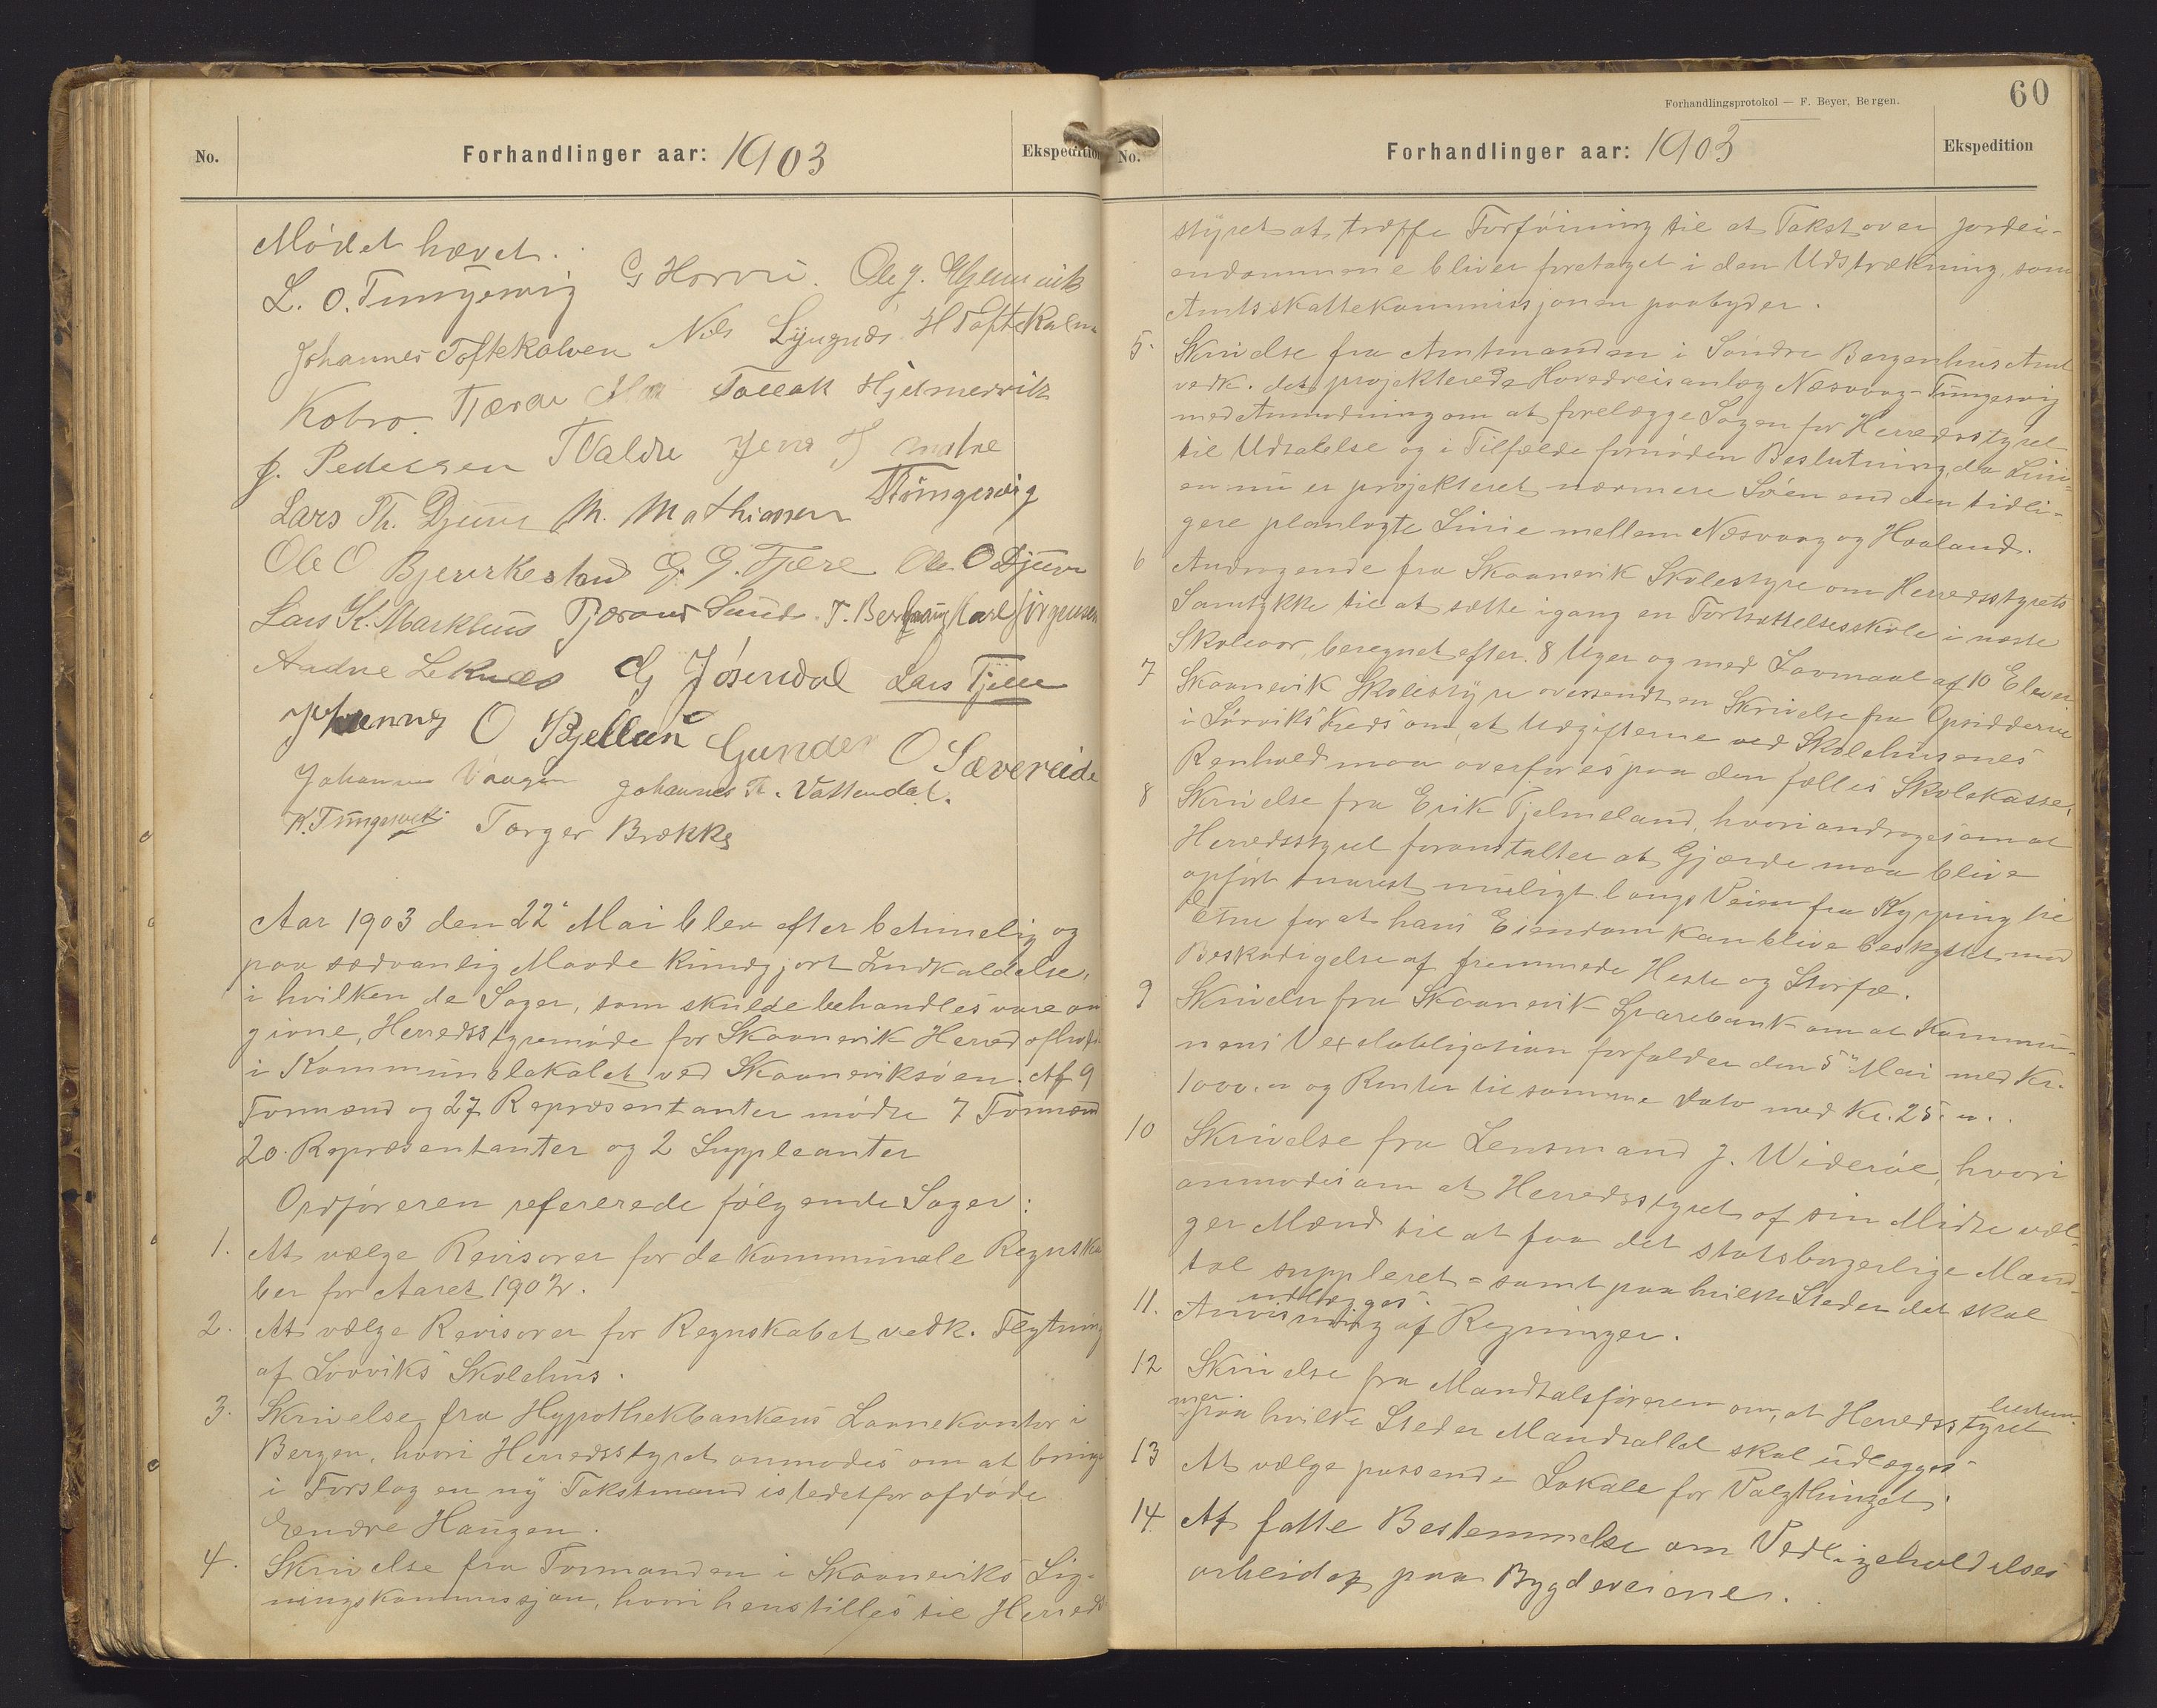 No.
Forhandlinger aar: 1903
Mødet hævet.
L. O. Tungesvig G Horvei. Ole J.
Johannes Toftekalven Nils Lyngnæs H Toftekalven
Kobro. Tollak Hjelmervik
J. Pedersen T Valdre Jens T Matre
Lars Th. Djuve M. Mathiassen Tungesvig
Ole O Bjerkestand G. G. Fjære Ole O Djuve
Lars K. Markhus Fjæran Sund. T. Carl Jørgensen
Andve Leknes G Jøsendal Lars
O Bjelland Gunder O Sævereide
Johannes Vaagen Johannes Th. Vattendal.
K. Tungesvik Torger Brække
Aar 1903 den 22 Mai blev efter betimelig og
paa sædvanlig Maade kundgjort Indkaldelse,
i hvilken de Sager, som skulde behandles vare an
givne, Herredsstyremøde for Skaanevik Herred afholdt
i Kommunelokalet ved Skaaneviksøen. Af 9
Formænd og 27 Repræsentanter mødte 7 Formænd
20 Repræsentanter og 2 Suppleanter
Ordføreren refererede følgende Sager:
1. At vælge Revisorer for de kommunale Regnska
ber for Aaret 1902.
2. At vælge Revisorer for Regnskabet vedk. Flytning
af Skolehus.
3. Skrivelse fra Hypothekbankens Laanekontor i
Bergen, hvori Herredsstyret anmodes om at bringe
i Forslag en ny Takstmand istedetfor afdøde
Endre Haugen.
4. Skrivelse fra Formanden i Skaaneviks Lig-
ningskommissjon, hvori henstilles til Herreds
Forhandlingsprotokol — F. Beyer, Bergen.
60
No.
Forhandlinger aar: 1903
Ekspedition
styret at træffe Forføining til at Takst over Jordei-
endommene bliver foretaget i den Udstrækning, som
Amtsskattekommissjonen paabyder.
5. Skrivelse fra Amtmanden i Søndre Bergenhus Amt
vedk. det projekterede Hovedveisanlæg Næsvaag-Tungesvig
med Anmodning om at forelægge Sagen for Herredsstyret
til Udtalelse og i Tilfælde fornøden Beslutning, da Lini-
en nu er projekteret nærmere Søen end den tidli-
gere planlagte Linie mellem Næsvaag og Haaland.
6 Andragende fra Skaanevik Skolestyre om Herredsstyrets
Samtykke til at sætte igang en Fortsættelsesskole i næste
Skoleaar, beregnet efter 8 Uger og med Lavmaal af 10 Elever
7 Skaanevik Skolestyre oversendt en Skrivelse fra Opsidderne
i Kreds om, at Udgifterne ved Skolehusenes
Renhold maa overføres paa den fælles Skolekasse.
8 Skrivelse fra Erik Fjelmeland, hvori andrages om at
Herredsstyret foranstalter at Gjærde maa blive
opført snarest muligt langs Veien fra Kyrping til
Etne for at hans Eiendom kan blive beskyttet mod
Beskadigelse af fremmede Heste og Storfæ.
9 Skrivelse fra Skaanevik Sparebank om at Kommu-
nens Vexelobligation forfalder den 5 Mai med Kr.
1000.00 og Renter til samme Dato med Kr. 25.00.
10 Skrivelse fra Lensmand J. Widerøe, hvori
anmodes om at Herredsstyret af sin Midte væl-
ger Mænd til at faa det statsborgerlige Mand-
tal suppleret - samt paa hvilke Steder det skal
udlægges.
11. Anvisning af Regninger.
12 Skrivelse fra Mandtalsføreren om, at Herredsstyret bestem-
mer paa hvilke Steder Mandtallet skal udlægges.
13 At vælge passende Lokale for Valgthinget.
14 At fatte Bestemmelse om Vedligeholdelses
arbeidet paa Bygdeveiene.